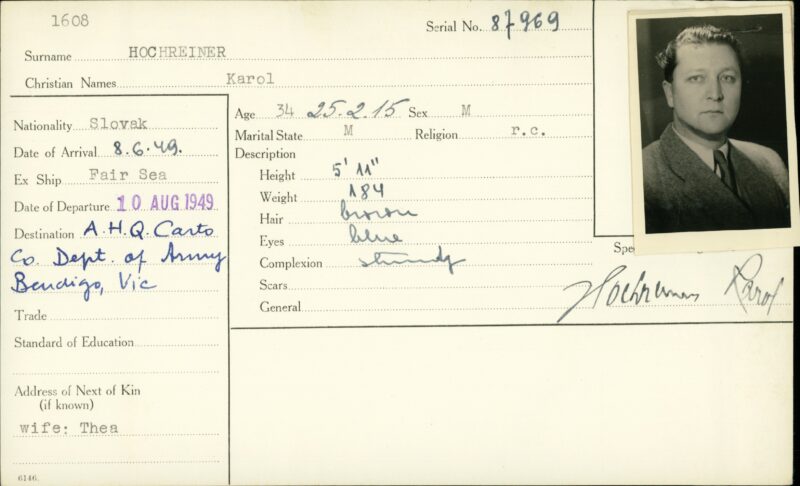 1608
Serial No. 87969
Surname HOCHREINER
Christian Names Karol
Nationality Slovak
Date of Arrival 8.6.49.
Ex Ship Fair Sea
Date of Departure 10 AUG 1949
Destination A.H.Q. Carto
Co. Dept. of Army
Bendigo, Vic
Trade
Standard of Education
Address of Next of Kin
(if known)
wife: Thea
6146.
Age 34 25.2.15 Sex M
Marital State M Religion r.c.
Description
Height 5' 11"
Weight 184
Hair brown
Eyes blue
Complexion
Scars
General
Spe
Hochreiner Karol